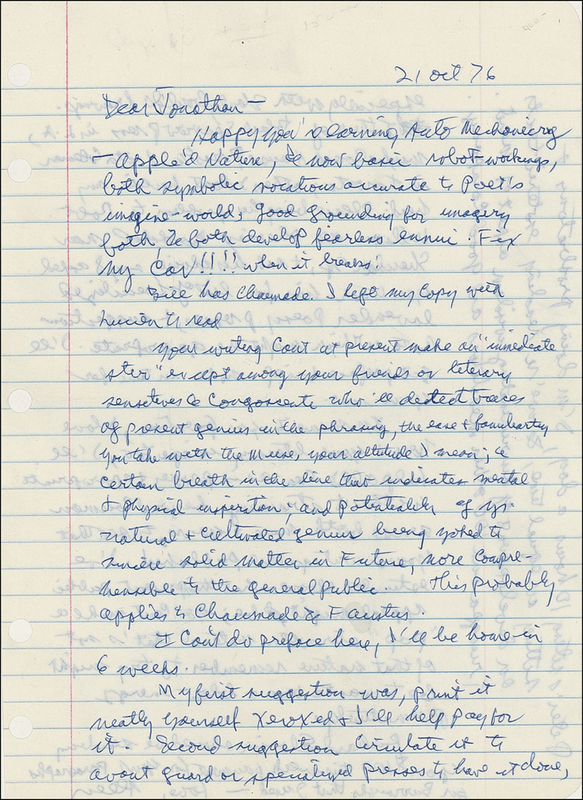 21 Oct 76
Dear Jonathan —
Happy you're learning Auto Mechanics
— Apple'd Nature, & now basic robot-workings,
both symbolic notations accurate to Poet's
imagine-world, good grounding for imagery
both & both develop fearless ennui. Fix
My Car!!!! when it breaks!
Bill has Chaumade. I left my Copy with
Lucien to read
Your writing Can't at present make an "immediate
stir" except among your friends or literary
sensitives & Congoscente who'll detect traces
of present genius in the phrasing, the ease & familiarity
you take with the Muse, your attitude I mean; a
certain breath in the line that indicates mental
& physical inspiration; and potentiality of yr
natural & cultivated genius being yoked to
solid matter in Future, more Compre-
hensible to the general public. This probably
applies to Chaumade & Faustus.
I Can't do preface here, I'll be home in
6 weeks.
My first suggestion was, print it
neatly yourself Xeroxed & I'll help pay for
it. Second suggestion Circulate it to
avant guard or specialized presses to have it done,